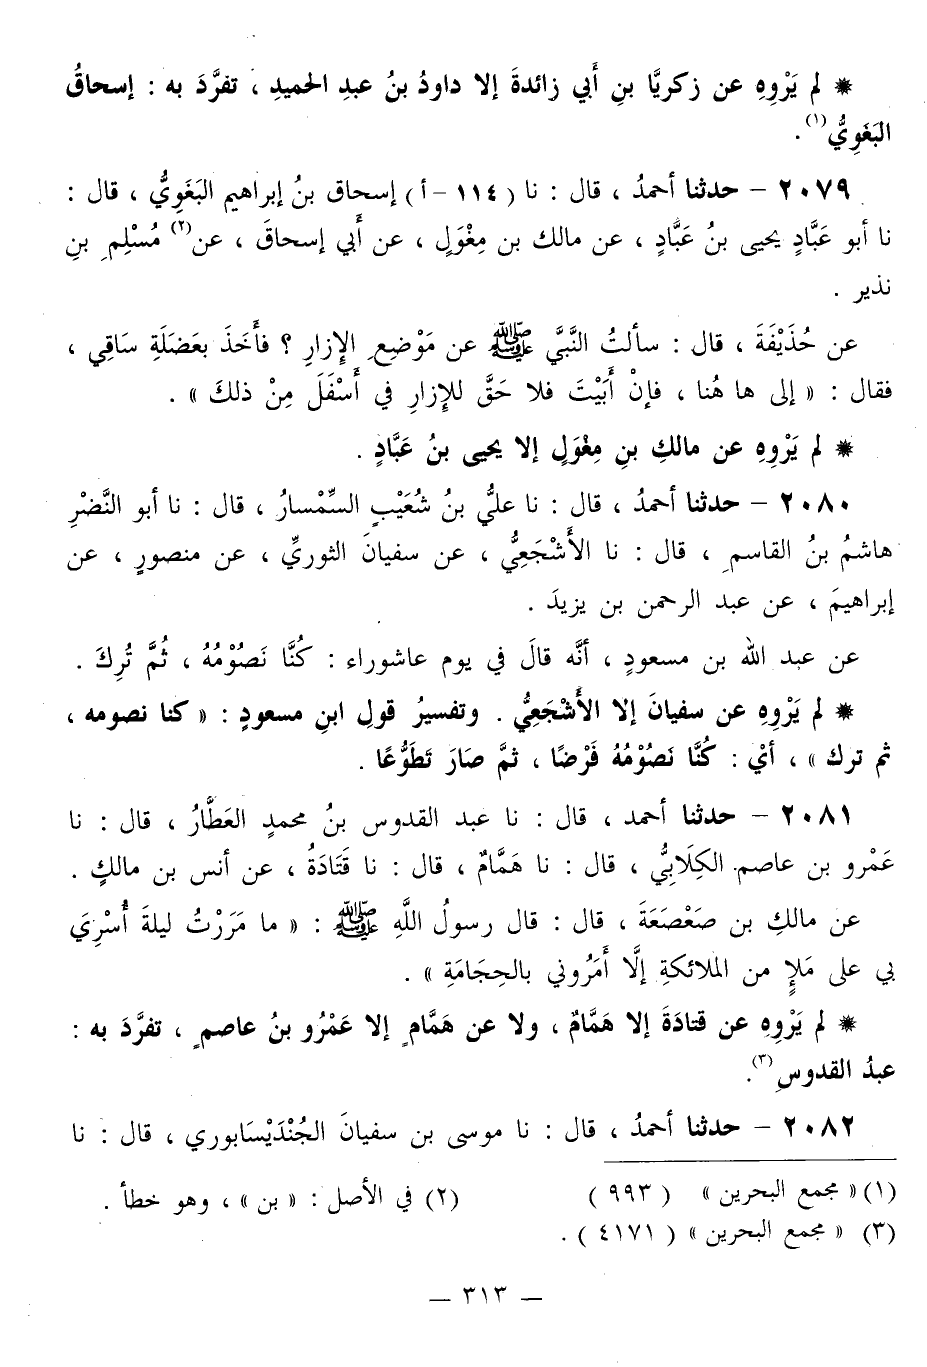 * لم يَرْوِهِ عن زكريَّا بنِ أَبي زائدةَ إلا داودُ بنُ عبدِ الحميدِ ، تفرَّدَ به : إسحاقُ
البَغَوِيُّ(١).
٢٠٧٩ – حدثنا أحمدُ ، قال : نا ( ١١٤ – أ ) إسحاق بنُ إبراهيم البَغَوِيُّ ، قال :
نا أبو عَبَّادٍ يحيى بنُ عَبَّادٍ ، عن مالك بن مِغْوَلٍ ، عن أَبي إسحاقَ ، عن(٢) مُسْلِمِ بنِ
نذير .
عن حُذَيْفَةَ ، قال : سألتُ النَّبيَّ ﷺ عن مَوْضعِ الإِزارِ ؟ فأَخَذَ بعَضَلَةِ سَاقِي ،
فقال : « إلى ها هُنا ، فإنْ أَبَيْتَ فلا حَقَّ للإِزارِ في أَسْفَلَ مِنْ ذلكَ » .
* لم يَرْوِهِ عن مالكِ بنِ مِغْوَلٍ إلا يحيى بنُ عَبَّادٍ .
٢٠٨٠ – حدثنا أحمدُ ، قال : نا عليُّ بنُ شُعَيْبٍ السِّمْسارُ ، قال : نا أبو النَّضْرِ
هاشمُ بنُ القاسمِ ، قال : نا الأَشْجَعِيُّ ، عن سفيانَ الثوريِّ ، عن منصورٍ ، عن
إبراهيمَ ، عن عبد الرحمن بن يزيدَ .
عن عبد الله بن مسعودٍ ، أنَّه قالَ في يوم عاشوراء : كُنَّا نَصُوْمُهُ ، ثُمَّ تُرِكَ .
* لم يَرْوِهِ عن سفيانَ إلا الأَشْجَعِيُّ . وتفسيرُ قولِ ابنِ مسعودٍ : « كنا نصومه ،
ثم ترك » ، أيْ : كُنَّا نَصُوْمُهُ فَرْضًا ، ثمَّ صَارَ تَطَوُّعًا .
٢٠٨١ – حدثنا أحمد ، قال : نا عبد القدوس بنُ محمدٍ العَطَّارُ ، قال : نا
عَمْرو بن عاصم الكِلَابِيُّ ، قال : نا هَمَّامٌ ، قال : نا قَتَادَةُ ، عن أنس بن مالكٍ .
عن مالكِ بن صَعْصَعَةَ ، قال : قال رسولُ اللَّهِ ﷺ : « ما مَرَرْتُ ليلةَ أُسْرِيَ
بي على مَلإٍ من الملائكةِ إلَّا أَمَرُوني بالحِجَامَةِ » .
* لم يَرْوِهِ عن قتادَةَ إلا هَمَّامٌ ، ولا عن هَمَّامٍ إلا عَمْرُو بنُ عاصمٍ ، تفرَّدَ به :
عبدُ القدوسِ(٣).
٢٠٨٢ – حدثنا أحمدُ ، قال : نا موسى بن سفيانَ الجُنْدَيْسَابوري ، قال : نا
(١) « مجمع البحرين » ( ٩٩٣ ) (٢) في الأصل : « بن » ، وهو خطأ .
(٣) « مجمع البحرين » ( ٤١٧١ ) .
— ٣١٣ —